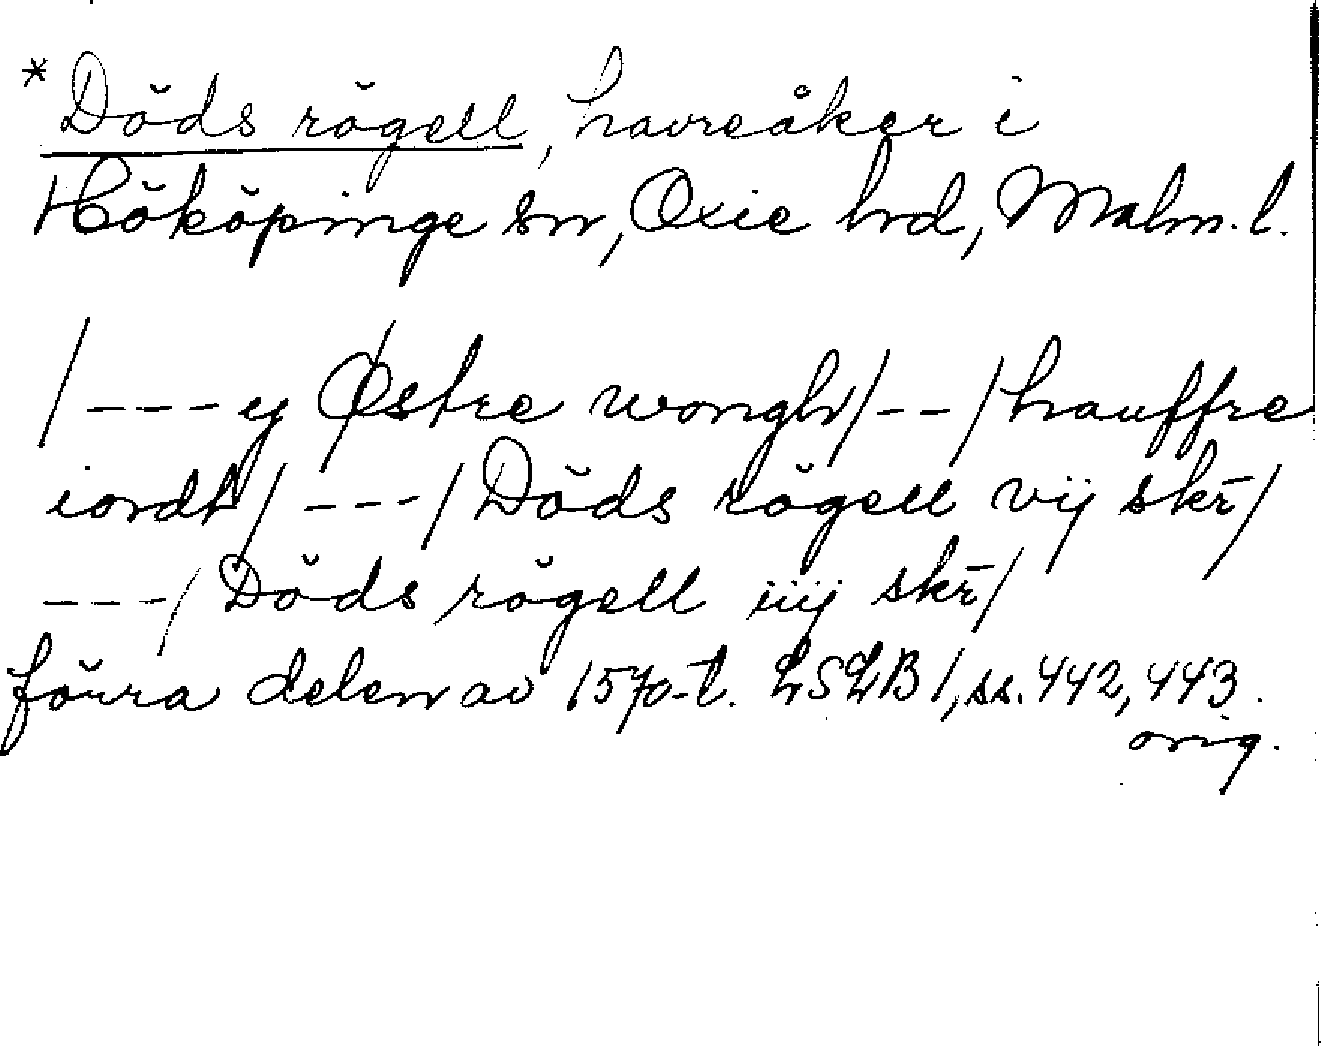 * Döds rögell, havreåker i
Hököpinge sn, Oxie hd, Malm. l.
/---y Østre wongh/--/hauffre
iordt/---/Döds rögell vij skr̄/
---/Döds rögell iiij skr̄/
förra delen av 1570-t. LSLB 1, ss. 442, 443.
orig.